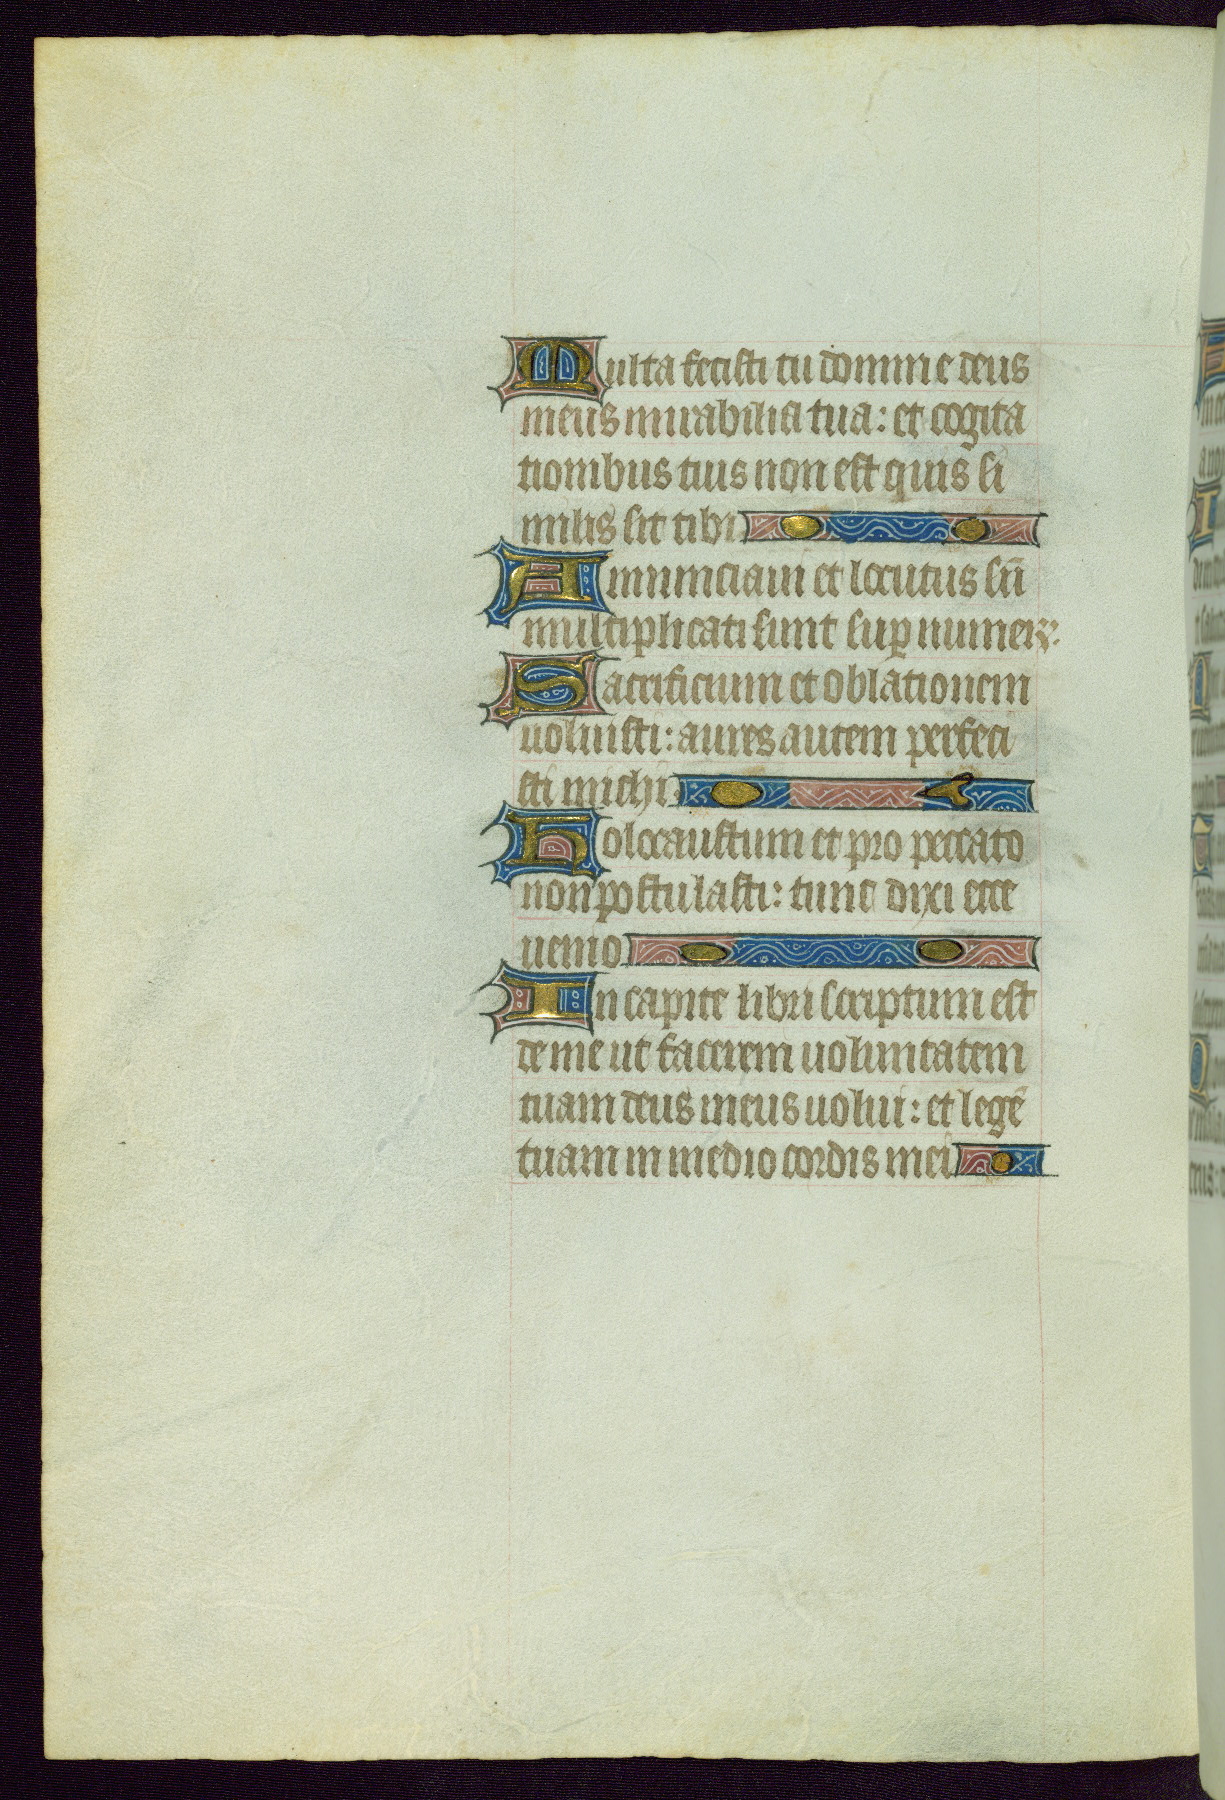 Multa fecisti tu domine deus
meus mirabilia tua: et cogita
tionibus tuis non est quis si
milis sit tibi
Annunciaui et locutus sū
multiplicati sunt sup̄ numeꝝ.
Sacrificium et oblationem
uoluisti: aures autem perfeci
sti michi.
Holocaustum et pro peccato
non postulasti: tunc dixi ecce
uenio
In capite libri scriptum est
de me ut facerem uoluntatem
tuam deus meus uolui: et legē
tuam in medio cordis mei